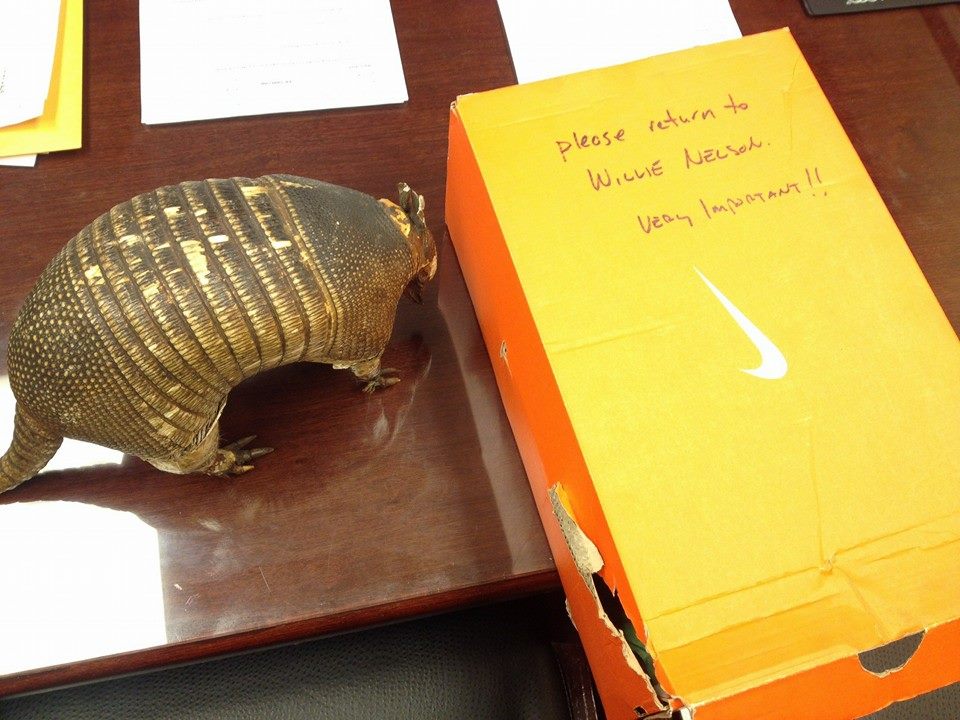 please return to
WILLIE NELSON.
VERY IMPORTANT!!